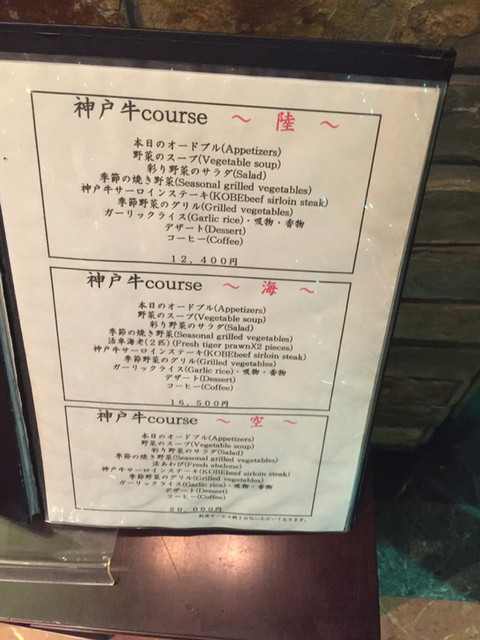 神戸牛course ～ 陸 ～
本日のオードブル(Appetizers)
野菜のスープ(Vegetable soup)
彩り野菜のサラダ(Salad)
季節の焼き野菜(Seasonal grilled vegetables)
神戸牛サーロインステーキ(KOBEbeef sirloin steak)
季節野菜のグリル(Grilled vegetables)
ガーリックライス(Garlic rice)・吸物・香物
デザート(Dessert)
コーヒー(Coffee)
12,400円
神戸牛course ～ 海 ～
本日のオードブル(Appetizers)
野菜のスープ(Vegetable soup)
彩り野菜のサラダ(Salad)
季節の焼き野菜(Seasonal grilled vegetables)
活車海老(2匹)(Fresh tiger prawn)(2 pieces)
神戸牛サーロインステーキ(KOBEbeef sirloin steak)
季節野菜のグリル(Grilled vegetables)
ガーリックライス(Garlic rice)・吸物・香物
デザート(Dessert)
コーヒー(Coffee)
16,500円
神戸牛course ～ 空 ～
本日のオードブル(Appetizers)
野菜のスープ(Vegetable soup)
彩り野菜のサラダ(Salad)
季節の焼き野菜(Seasonal grilled vegetables)
活あわび(Fresh abalone)
神戸牛サーロインステーキ(KOBEbeef sirloin steak)
季節野菜のグリル(Grilled vegetables)
ガーリックライス(Garlic rice)・吸物・香物
デザート(Dessert)
コーヒー(Coffee)
20,000円